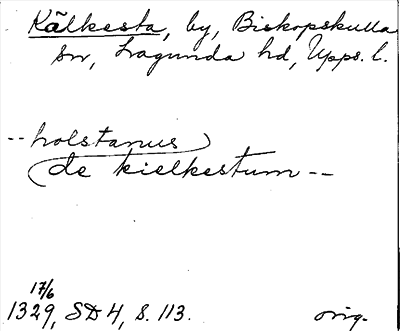 Kälkesta, by, Biskopskulla
sn, Lagunda hd, Upps. l.
-- holstanus
de kielkestum --
17/6
1329, SD 4, s. 113. orig.